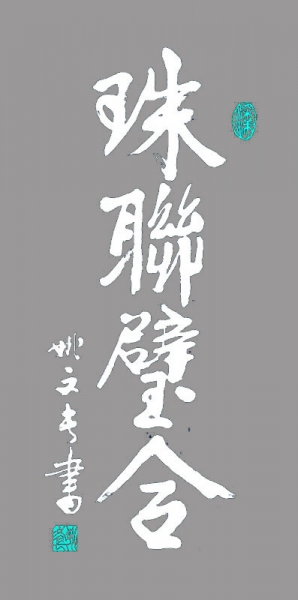 珠聯璧合
姚文春書